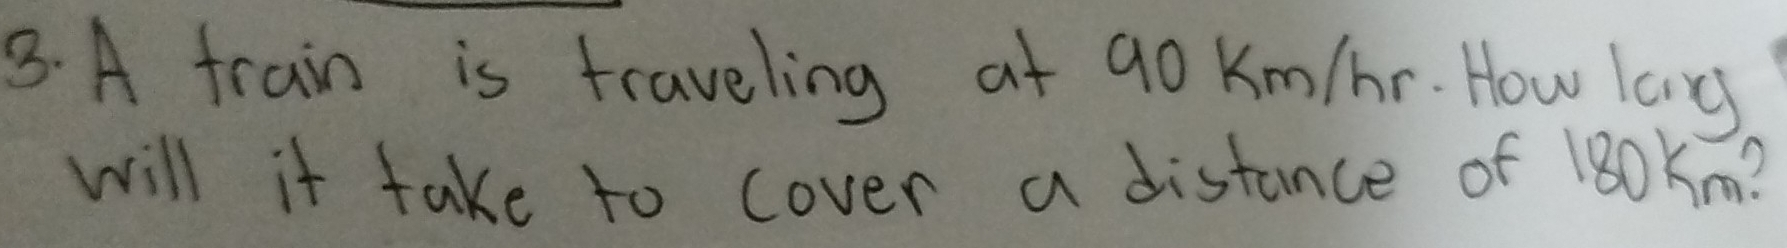 3. A train is traveling at 90 Km/hr. How long
will it take to cover a distance of 180 Km?